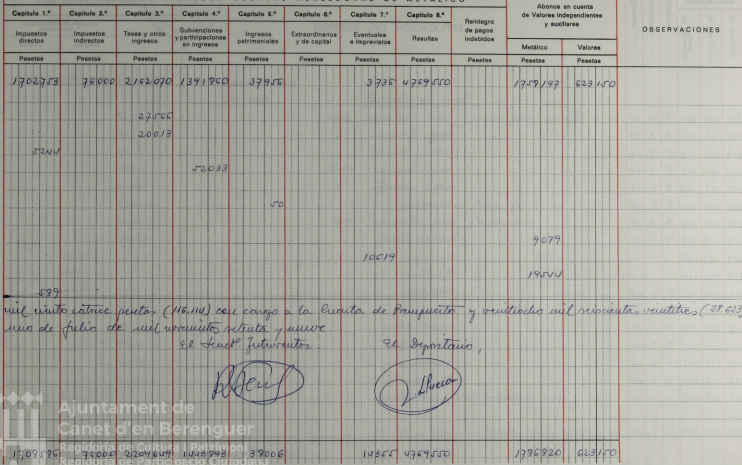 Capítulo 1.º Capítulo 2.º Capítulo 3.º Capítulo 4.º Capítulo 5.º Capítulo 6.º Capítulo 7.º Capítulo 8.º Reintegro de pagos indebidos Abonos en cuenta de Valores independientes y auxiliares OBSERVACIONES
Impuestos directos Impuestos indirectos Tasas y otros ingresos Subvenciones y participaciones en ingresos Ingresos patrimoniales Extraordinarios y de capital Eventuales e imprevistos Resultas Metálico Valores
Pesetas Pesetas Pesetas Pesetas Pesetas Pesetas Pesetas Pesetas Pesetas Pesetas Pesetas
1703753 76000 2162070 1391860 37956 3736 4769550 1758197 623150
27566
20013
5244
52033
50
9079
10619
19544
599
mil ciento catorce pesetas (115.114) con cargo a la Cuenta de Presupuesto y veintiocho mil seiscientas veintitres (28.623
uno de julio de mil novecientos setenta y nueve.
El Secrtº. Interventor. El Depositario,
Ajuntament de
Canet d'en Berenguer
Regidoria de Cultura i Patrimoni
Regidoria de Participació Ciutadana
1709596 76000 2209649 1443893 38006 14355 4769550 1786820 623150